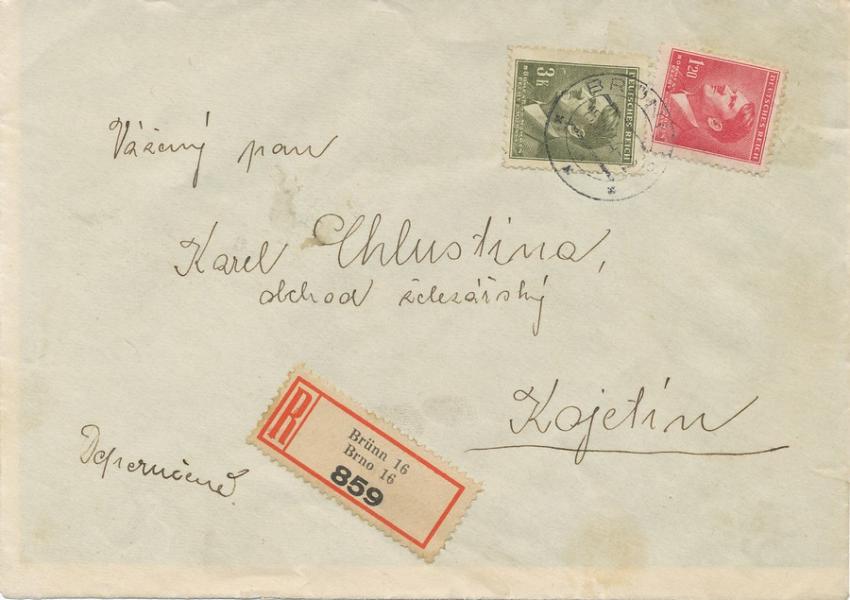 3 K
DEUTSCHES REICH
1.20
DEUTSCHES REICH
Vážený pan
Karel Chlustina,
obchod železářský
Kojetín
Doporučeně.
R
Brünn 16
Brno 16
859